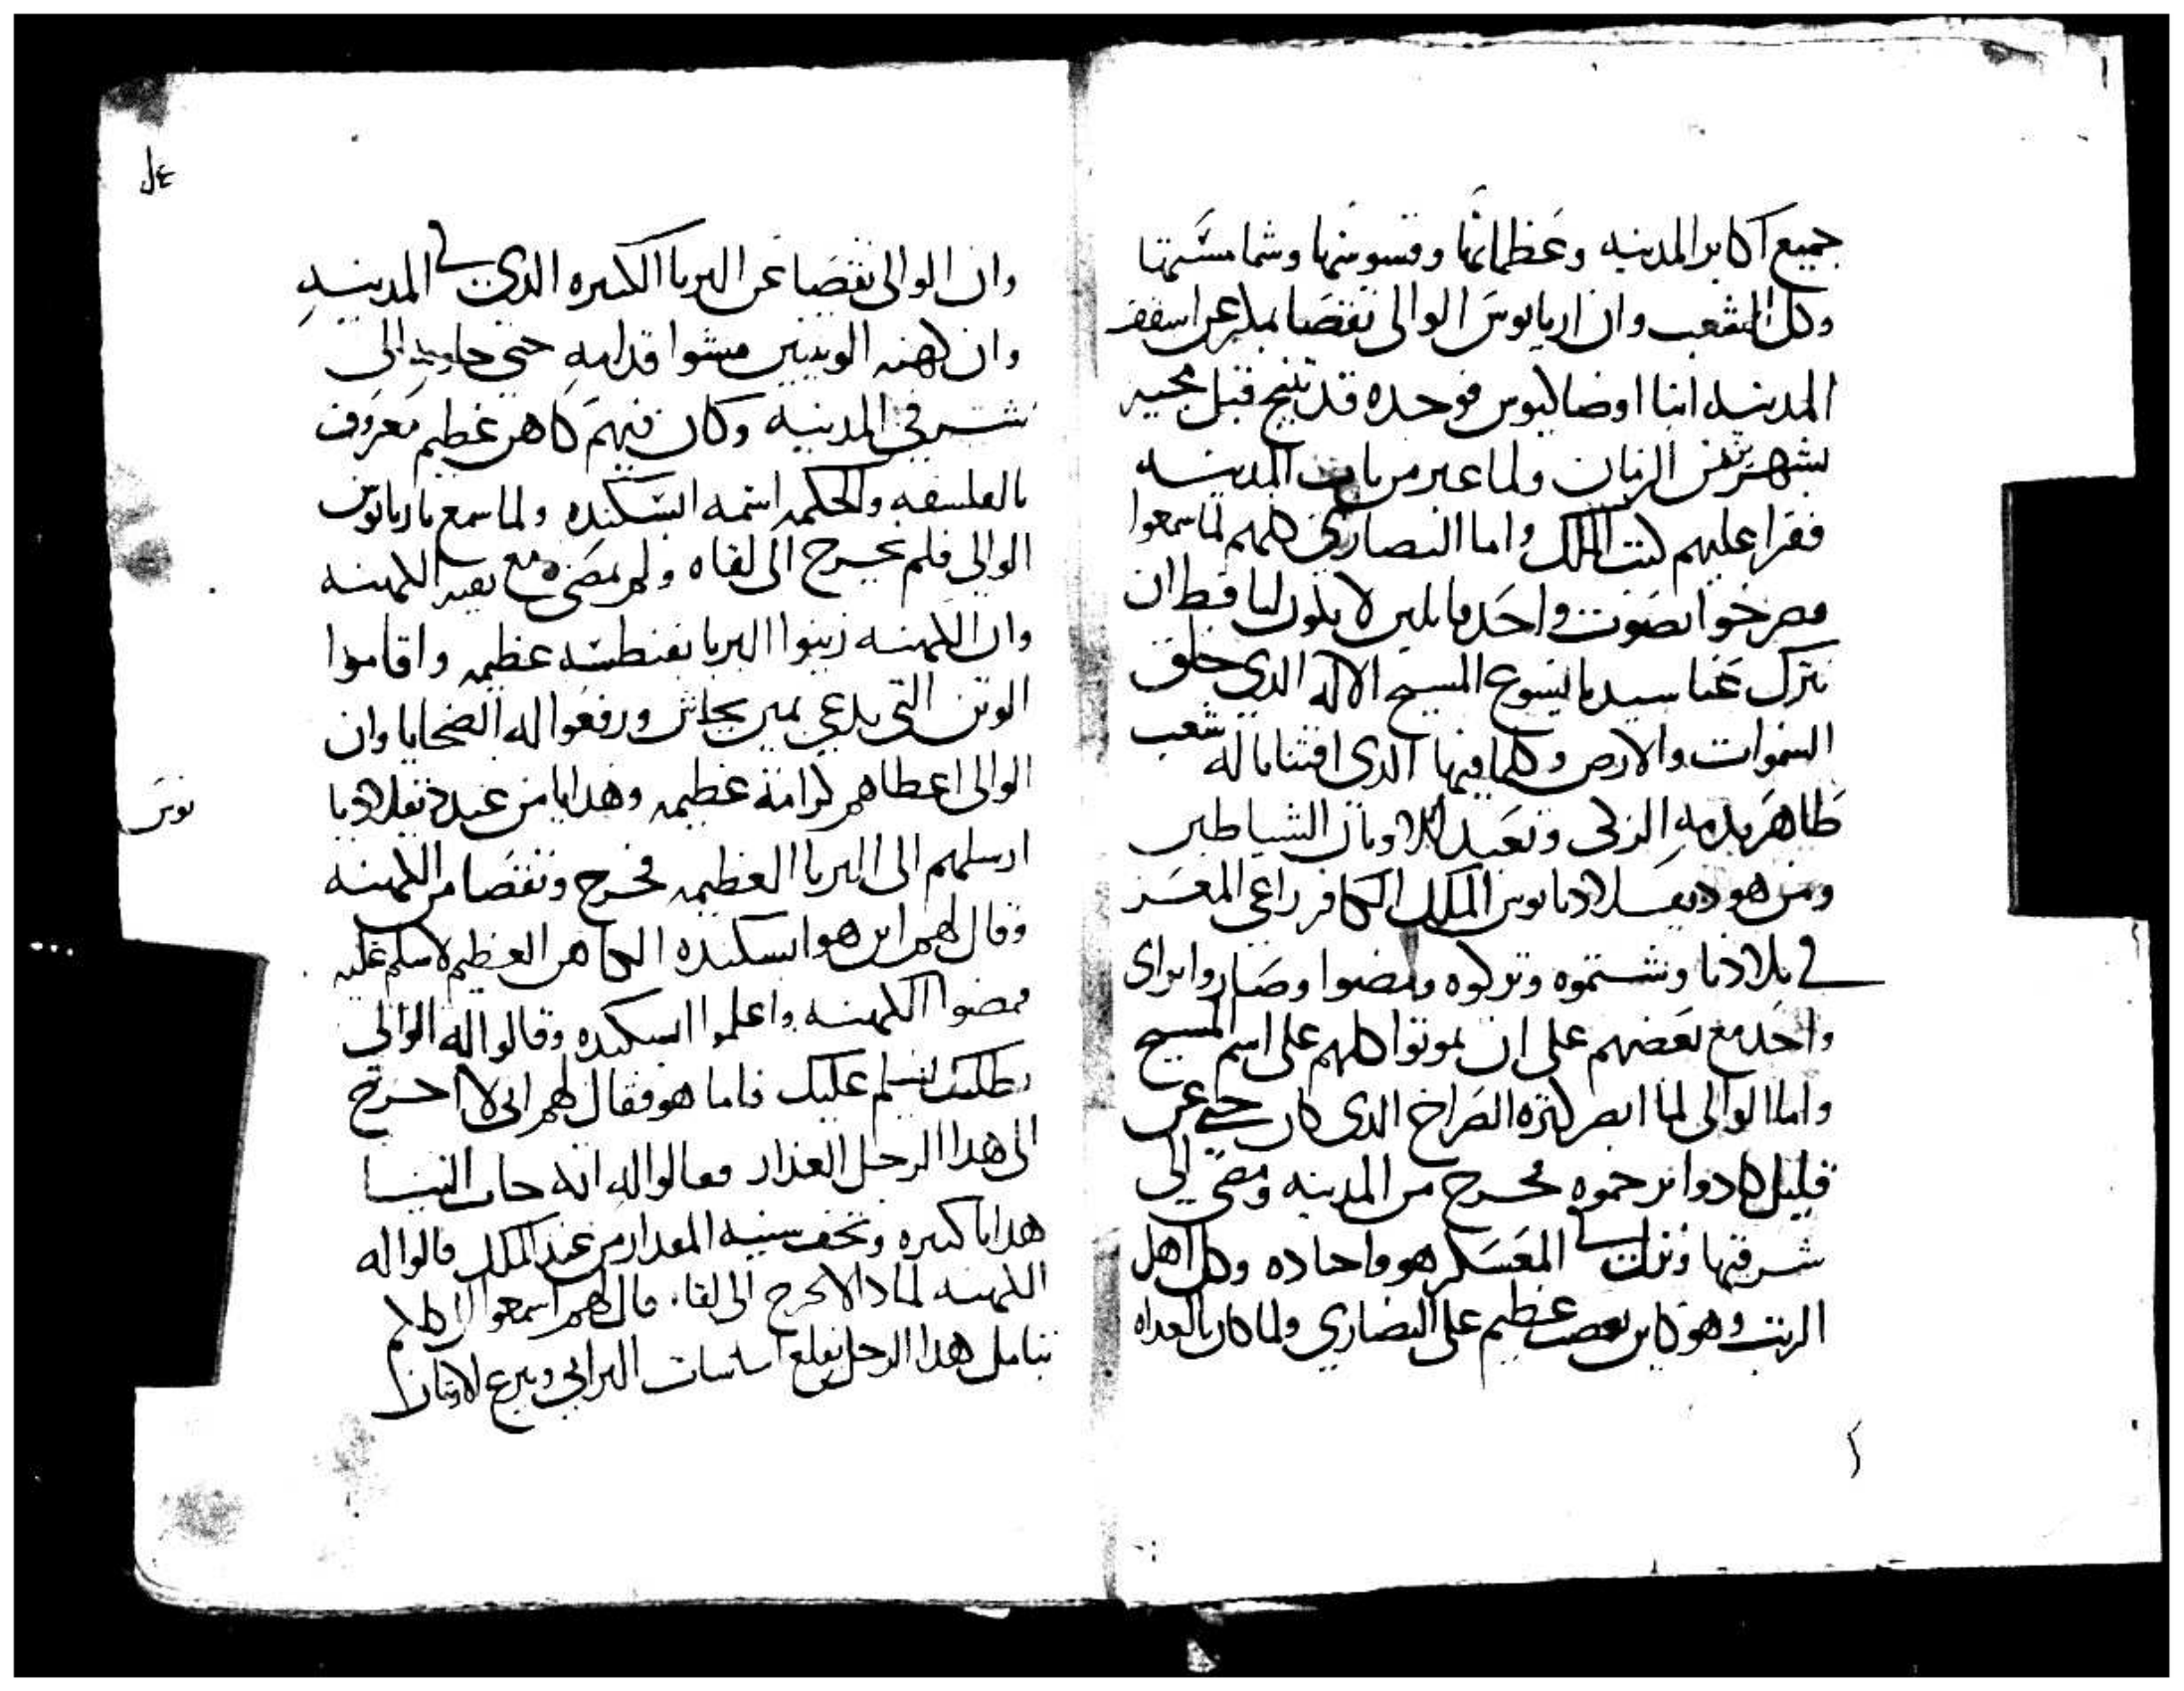 جميع اكابر المدينه وعظمائها وقسوسها وشمامستها
وكل الشعب وان اريانوس الوالي تفصا عن اسقف
المدينه انبا فوجده قد تنيح قبل مجيه
بشهر من الزمان ولما عبر من باب المدينه
فقرا عليهم كتب الملك واما النصاري كلهم لما سمعوا
فصرخوا بصوت واحد قايلين لا يكون لنا قط ان
نترك عنا سيدنا يسوع المسيح الاله الدي خلق
السموات والارض وكلما فيها الدي اقتنانا له شعب
طاهر بدمه الزكي ونعبد الاوتان الشياطين
ومن هو ديقلاديانوس الملك الكافر راعي المعز
في بلادنا وشتموه وتركوه ومضوا وصاروا براي
واحد مع بعضهم على ان يموتوا كلهم على اسم المسيح
واما الوالي لما ابصر كثرة الصراخ الدي كان حتى عن
قليل كادوا يرجموه فخرج من المدينه ومضى الى
شرقيها ونزل في المعسكر هو واجناده وكل اهل
الريب وهو كاين بغضب عظيم على النصاري ولما كان بالغداه
عل
وان الوالي تفصا عن البربا الكبيره الدي في المدينه
وان كهنه الوتنيين مشوا قدامه حتى جاوبه الى
شرقي المدينه وكان فيهم كاهن عظيم معروف
بالفلسفه والحكمه اسمه السكندره ولما سمع باريانوس
الوالي فلم يخرج الى لقاه ولم يمضى مع بقيه الكهنه
وان الكهنه زينوا البربا بفنطسه عظيمه واقاموا
الوتن التي يدعي ورفعوا له الضحايا وان
الوالي اعطاهم كرامة عظيمه وهدايا من عند دقلاديا
نوس
ارسلهم الى البربا العظيمه فخرج وتفصا من الكهنه
وقال لهم اين هو اسكندره الكاهن العظيم لاسلم عليه
فمضوا الكهنه واعلموا اسكندره وقالوا له الوالي
يطلبك ليسلم عليك فاما هو فقال لهم اني لا اخرج
الى هدا الرجل الغدار فقالوا له انه جاب الينا
هدايا كتيره وتحف سنيه المقدار من عند الملك قالوا له
الكهنه لمادا لا تخرج الى لقاه قال لهم اسمعوا كلام
تتامل هدا الرجل يقلع اساسات البرابي وينزع الاوتان